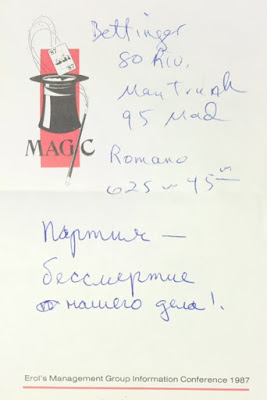 '87
MAGIC
Bettinger
80 Riv.
Man Trust
95 Mad
Romano
625 W 45th
Партия —
бессмертие
нашего дела!.
Erol's Management Group Information Conference 1987